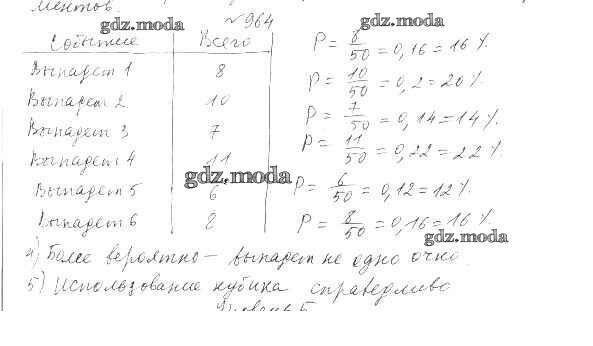 ментов.
gdz.moda
gdz.moda
№ 964
Событие Всего
Выпадет 1 8 P = 8/50 = 0,16 = 16 %.
Выпадет 2 10 P = 10/50 = 0,2 = 20 %.
Выпадет 3 7 P = 7/50 = 0,14 = 14 %.
Выпадет 4 11 P = 11/50 = 0,22 = 22 %.
gdz.moda
Выпадет 5 6 P = 6/50 = 0,12 = 12 %.
Выпадет 6 8 P = 8/50 = 0,16 = 16 %.
gdz.moda
4) Более вероятно – выпадет не одно очко.
5) Использование кубика справедливо